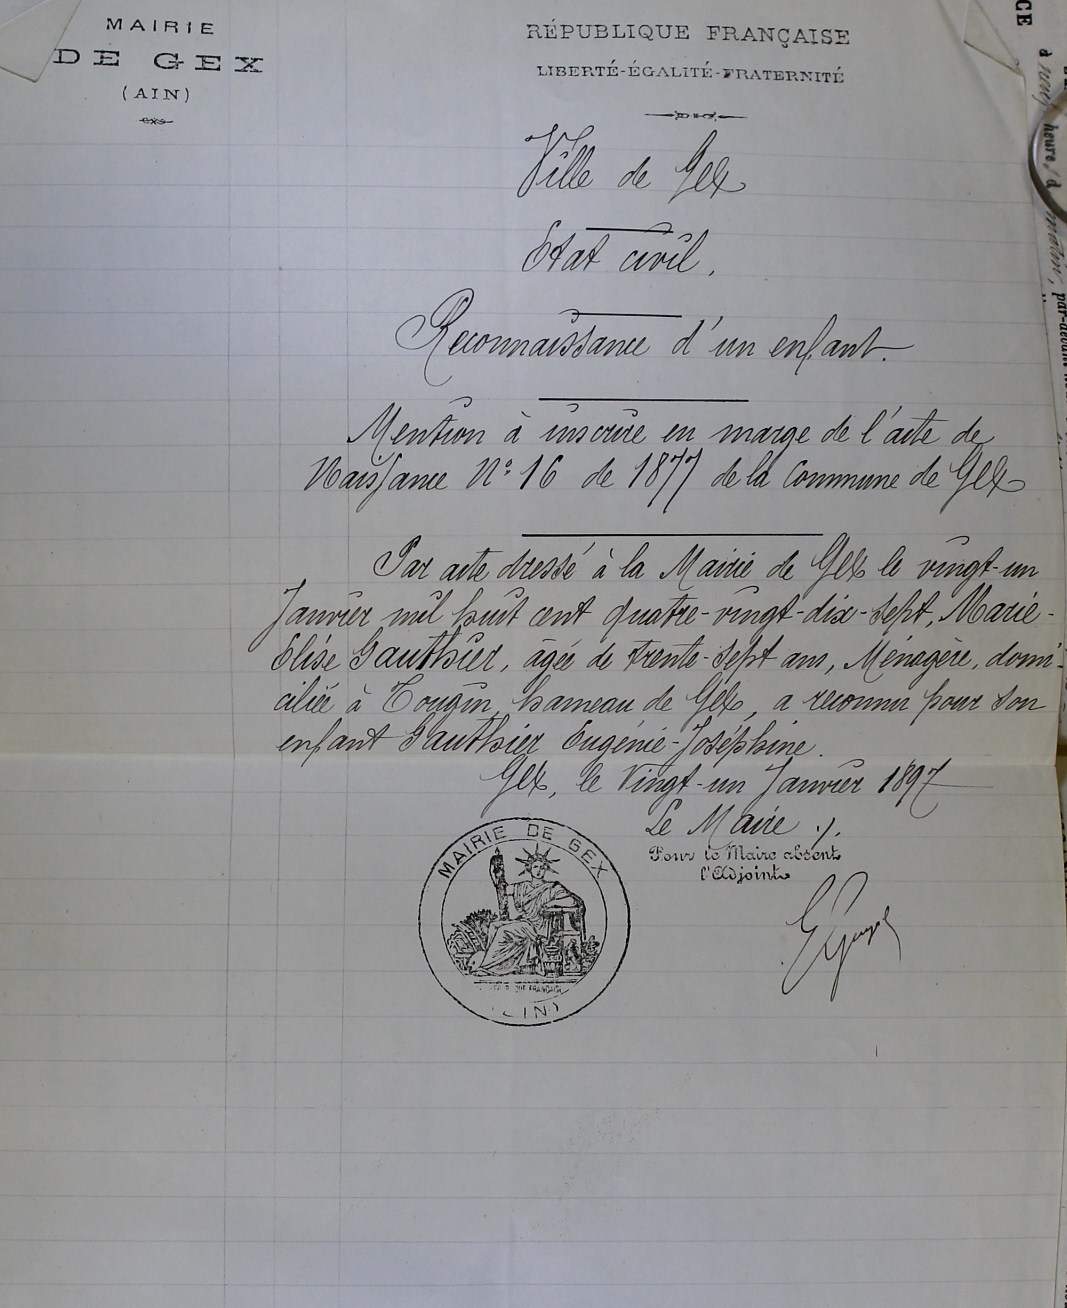 MAIRIE
DE GEX
(AIN)
RÉPUBLIQUE FRANÇAISE
LIBERTÉ-ÉGALITÉ-FRATERNITÉ
Ville de Gex
Etat civil.
Reconnaissance d'un enfant.
Mention à inscrire en marge de l'acte de
Naissance N° 16 de 1877 de la Commune de Gex
Par acte dressé à la Mairie de Gex le vingt-un
Janvier mil huit cent quatre-vingt-dix-sept, Marie-
Elise Gauthier, âgée de trente-sept ans, Ménagère, domi-
ciliée à Tougin, hameau de Gex, a reconnu pour son
enfant Gauthier Eugénie-Joséphine.
Gex, le Vingt-un Janvier 1897
Le Maire
Pour le Maire absent
l'Adjoint
MAIRIE DE GEX
(AIN)
CE
heure, d
matin, par-devant